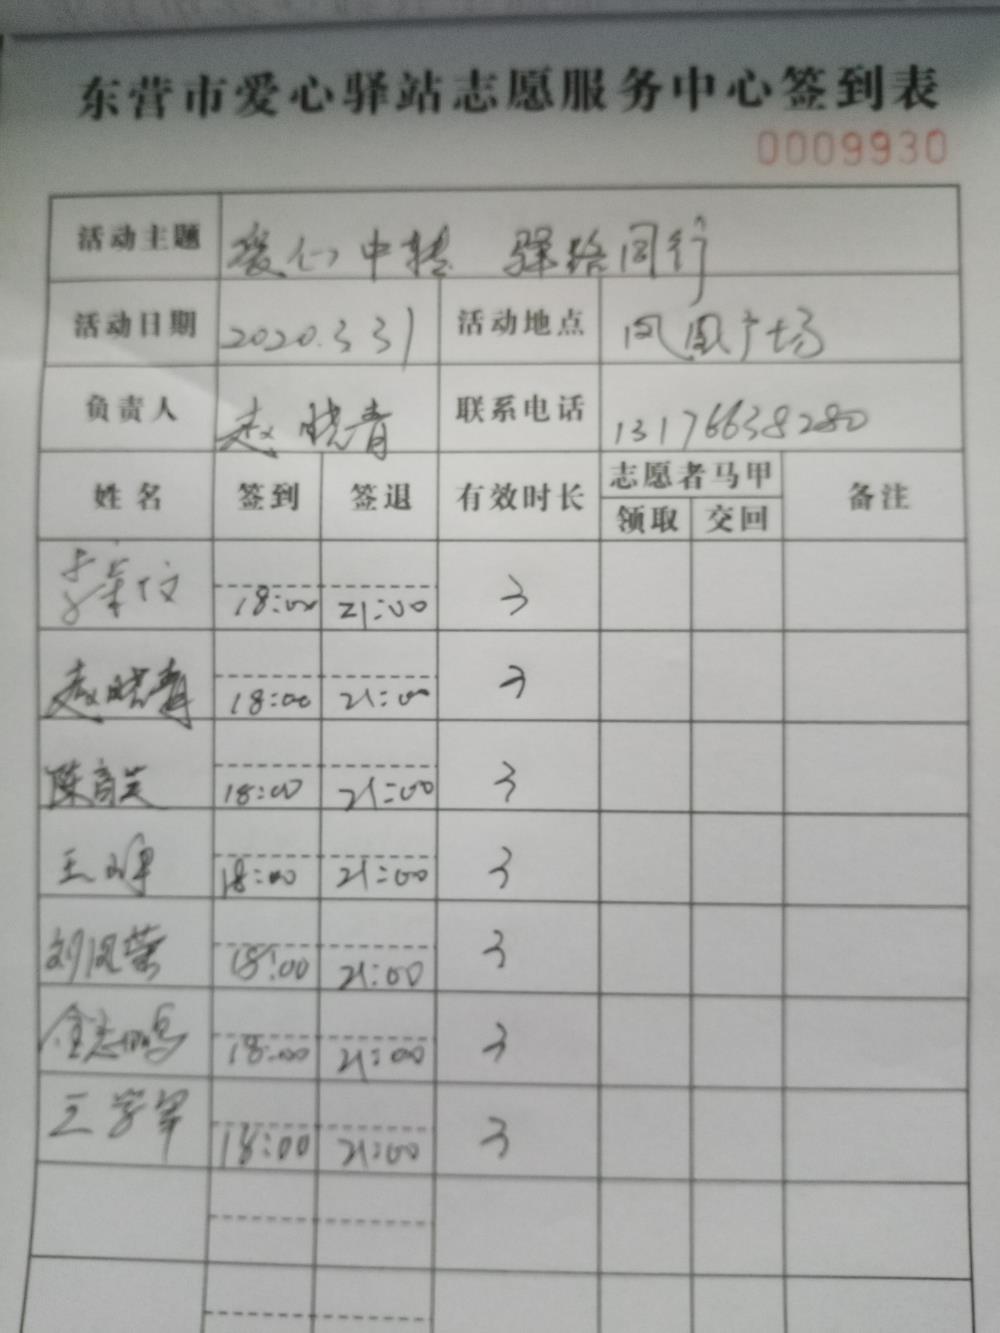 东营市爱心驿站志愿服务中心签到表
0009930
活动主题 爱心中转 驿路同行
活动日期 2020.3.31 活动地点 凤凰广场
负责人 赵晓青 联系电话 13176638280
姓名 签到 签退 有效时长 志愿者马甲 备注
领取 交回
18:00 21:00 3
赵晓青 18:00 21:00 3
陈育芝 18:00 21:00 3
王 18:00 21:00 3
刘凤荣 18:00 21:00 3
金志鸣 18:00 21:00 3
王学军 18:00 21:00 3